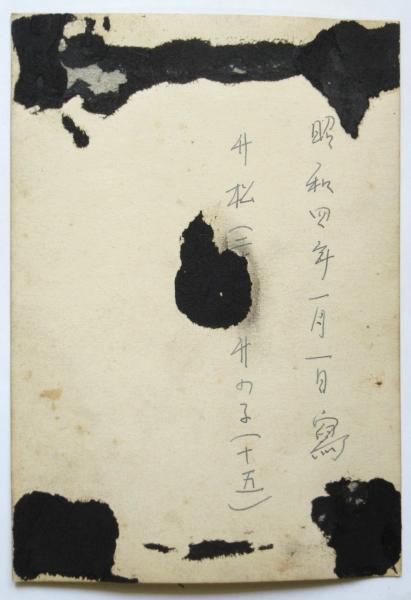 昭和四年一月一日寫
竹松（三 竹の子（十五）